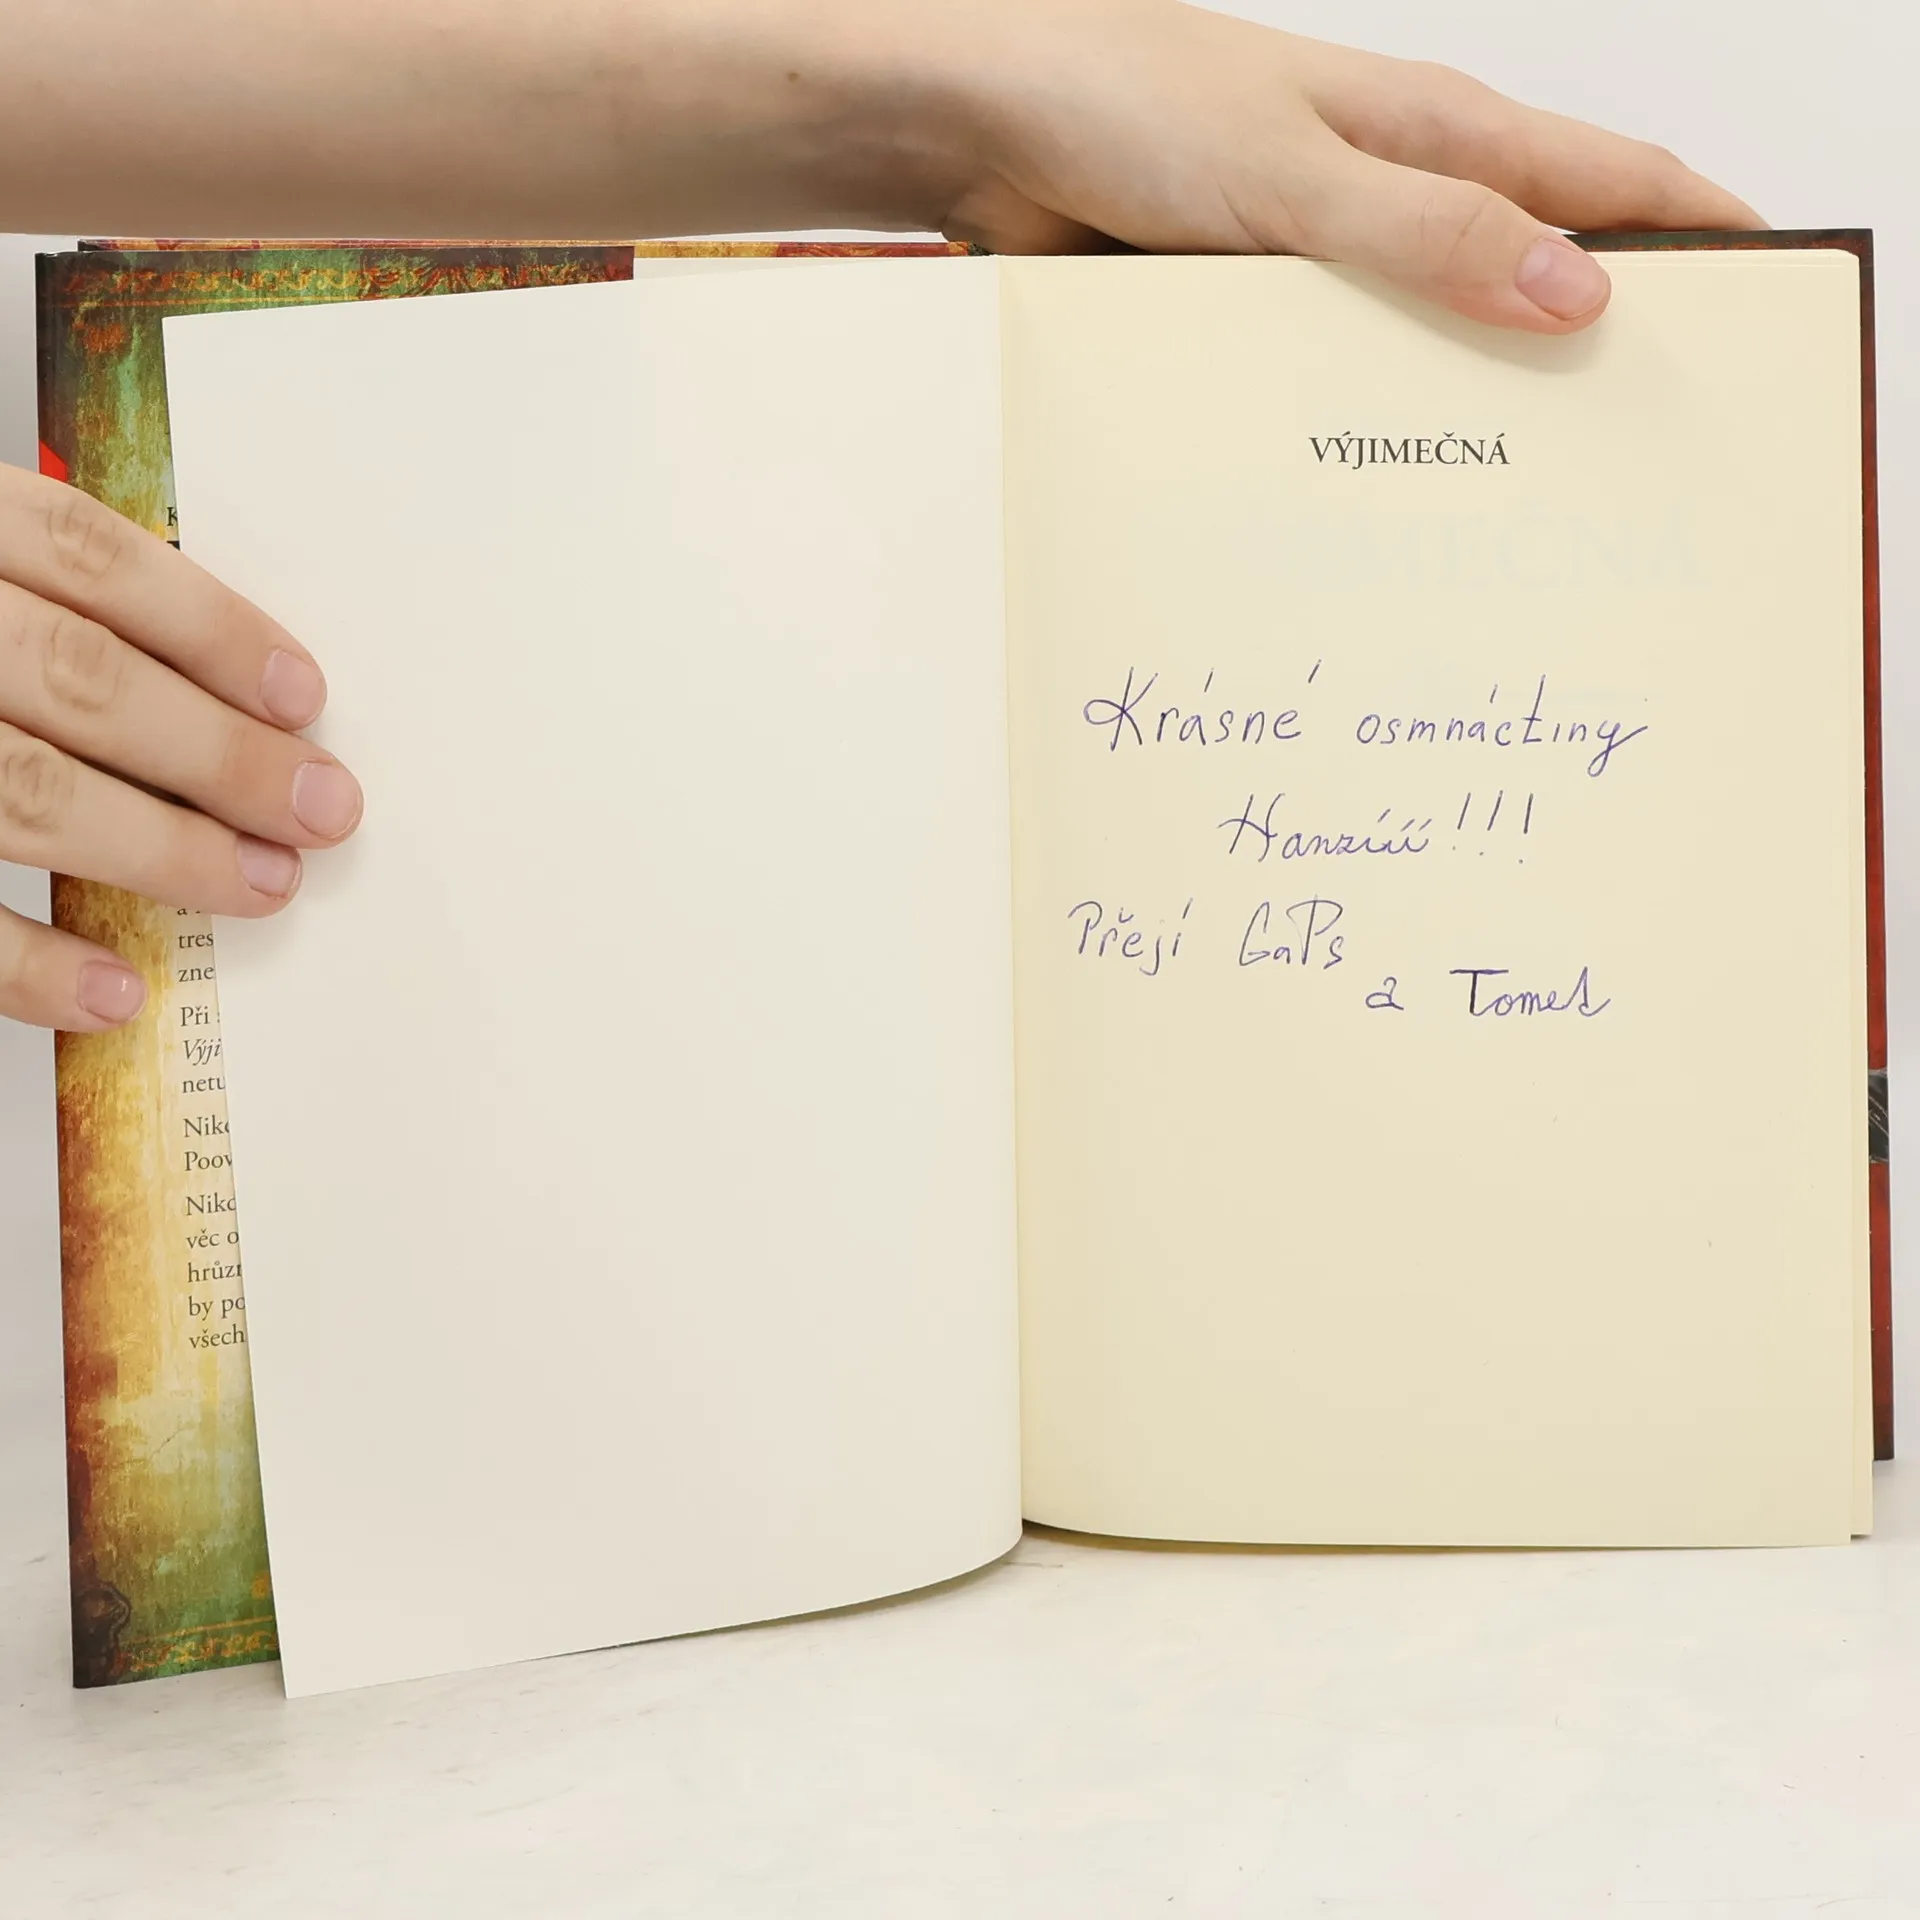 tres
zne
Při
Výji
netu
Nik
Poov
Nik
věc o
hrůzn
by po
všech
VÝJIMEČNÁ
Krásné osmnáctiny
Hanzííí!!!
Přejí GaPs
a Tomeš